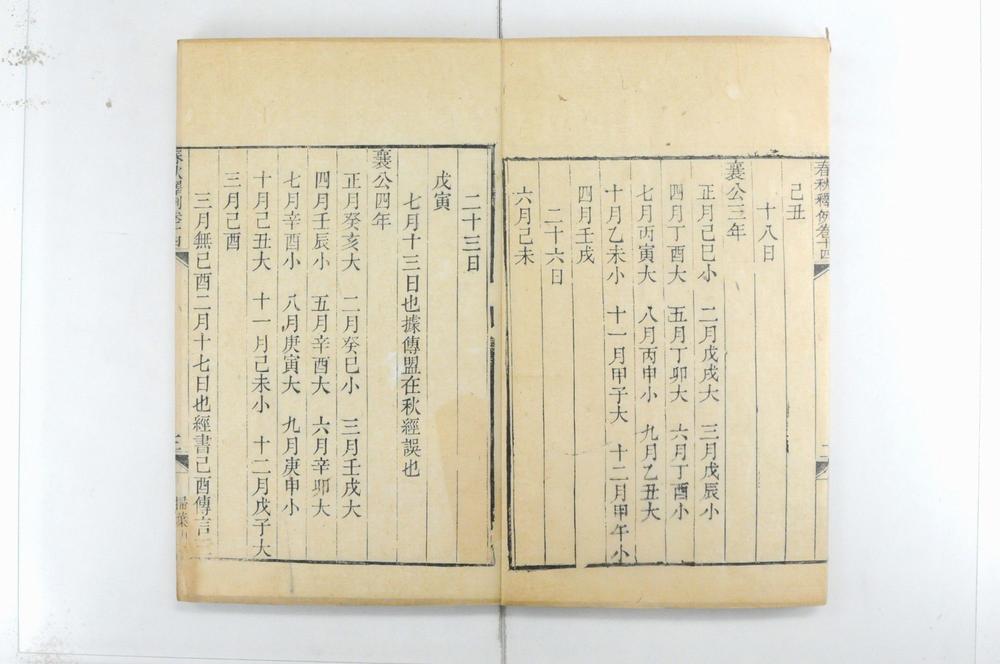 春秋釋例卷十四
己丑
十八日
襄公三年
正月己巳小 二月戊戌大 三月戊辰小
四月丁酉大 五月丁卯大 六月丁酉小
七月丙寅大 八月丙申小 九月乙丑大
十月乙未小 十一月甲子大 十二月甲午小
四月壬戌
二十六日
六月己未
二十三日
戊寅
七月十三日也據傳盟在秋經誤也
襄公四年
正月癸亥大 二月癸巳小 三月壬戌大
四月壬辰小 五月辛酉大 六月辛卯大
七月辛酉小 八月庚寅大 九月庚申小
十月己丑大 十一月己未小 十二月戊子大
三月己酉
三月無己酉二月十七日也經書己酉傳言二
春秋釋例卷十四
三
掃葉